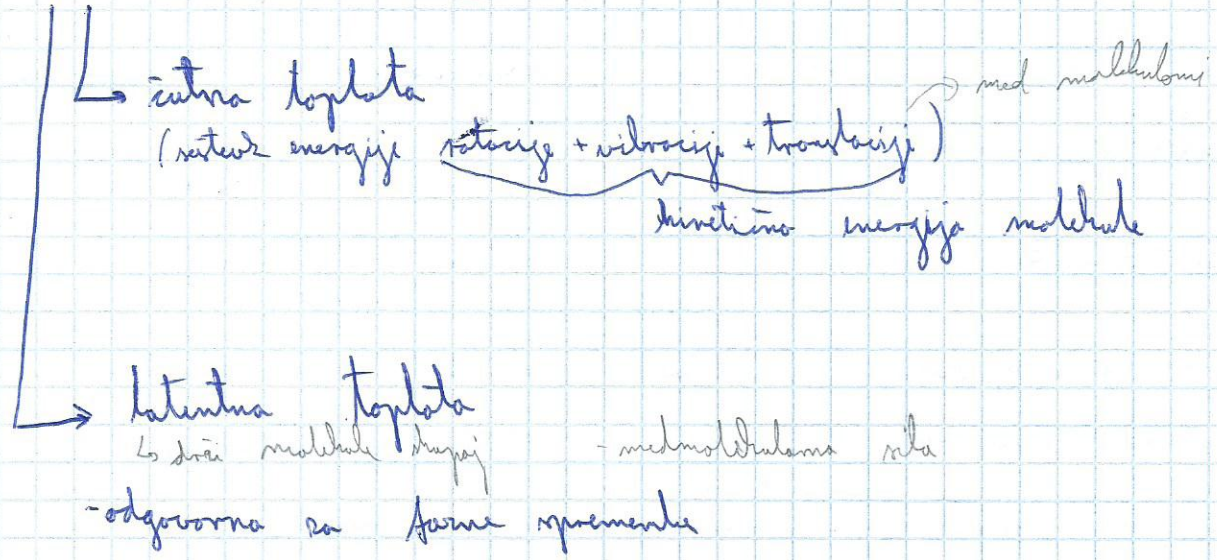 čutna toplota
med molekulami
(seštevk energije rotacije + vibracije + translacije)
kinetična energija molekule
latentna toplota
drži molekule skupaj - medmolekularna sila
- odgovorna za fazne spremembe